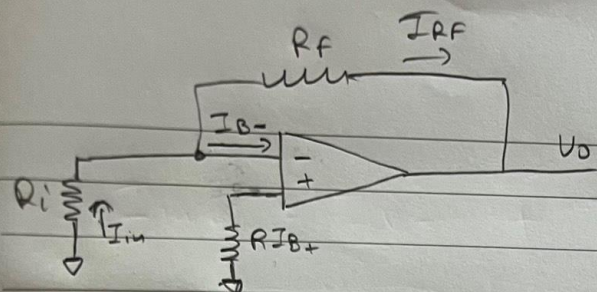 RF
IRF
IB-
-
+
Uo
Ri
Iin
RIB+